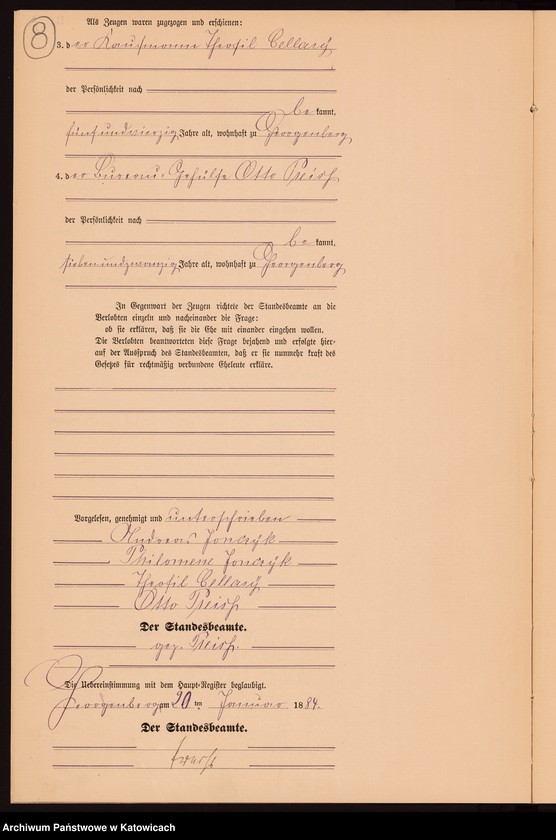 8
Als Zeugen waren zugezogen und erschienen:
3. der Kaufmann Theofil Cellary
der Persönlichkeit nach
be kannt,
fünf und vierzig Jahre alt, wohnhaft zu Georgenberg
4. der Bureau-Gehülfe Otto Preiß
der Persönlichkeit nach
be kannt,
sieben und zwanzig Jahre alt, wohnhaft zu Georgenberg
In Gegenwart der Zeugen richtete der Standesbeamte an die
Verlobten einzeln und nacheinander die Frage:
ob sie erklären, daß sie die Ehe mit einander eingehen wollen.
Die Verlobten beantworteten diese Frage bejahend und erfolgte hier-
auf der Ausspruch des Standesbeamten, daß er sie nunmehr kraft des
Gesetzes für rechtmäßig verbundene Eheleute erkläre.
Vorgelesen, genehmigt und unterschrieben
Andreas Jonczyk
Philomene Jonczyk
Theofil Cellary
Otto Preiß
Der Standesbeamte.
gez. Preiß.
Die Uebereinstimmung mit dem Haupt-Register beglaubigt.
Georgenberg am 20 ten Januar 1884.
Der Standesbeamte.
Archiwum Państwowe w Katowicach